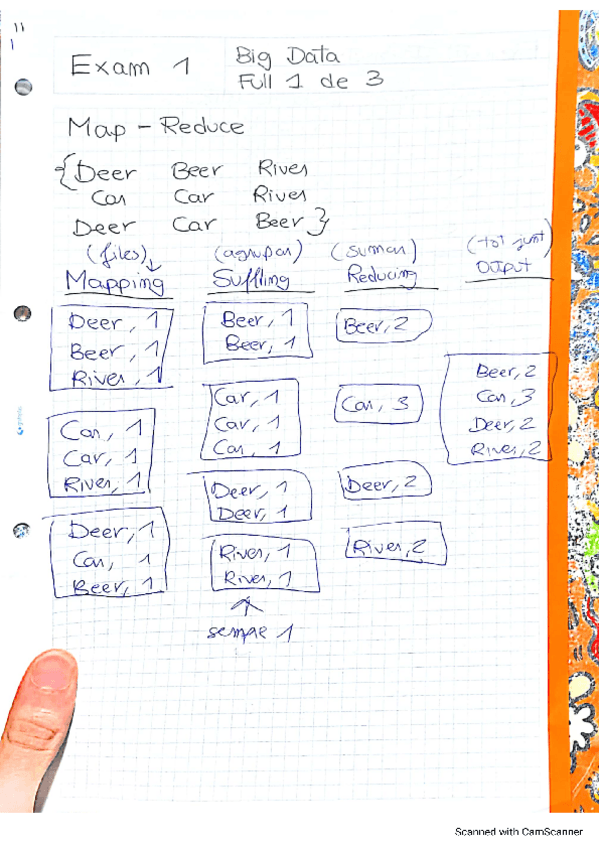 11
1
Exam 1
Big Data
Full 1 de 3
Map - Reduce
{Deer Beer River
Car Car River
Deer Car Beer}
(files) (agrupar) (sumar) (tot junt)
Mapping Suffling Reducing Output
Deer, 1
Beer, 1
River, 1
Car, 1
Car, 1
River, 1
Deer, 1
Car, 1
Beer, 1
Beer, 1
Beer, 1
Car, 1
Car, 1
Car, 1
Deer, 1
Deer, 1
River, 1
River, 1
sempre 1
Beer, 2
Car, 3
Deer, 2
River, 2
Beer, 2
Car, 3
Deer, 2
River, 2
Scanned with CamScanner